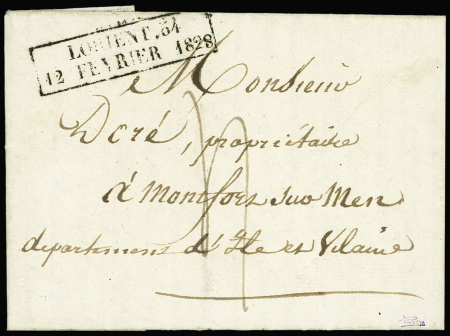 LORIENT.54
12 FEVRIER 1828
Monsieur
Doré, propriétaire
à Montfort sur Men
département d'Ile et Vilaine